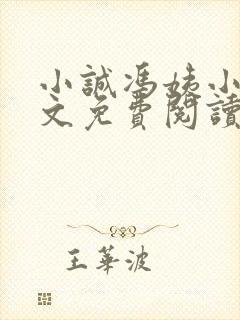 小誠馮姨小
文免費閱讀
王華波